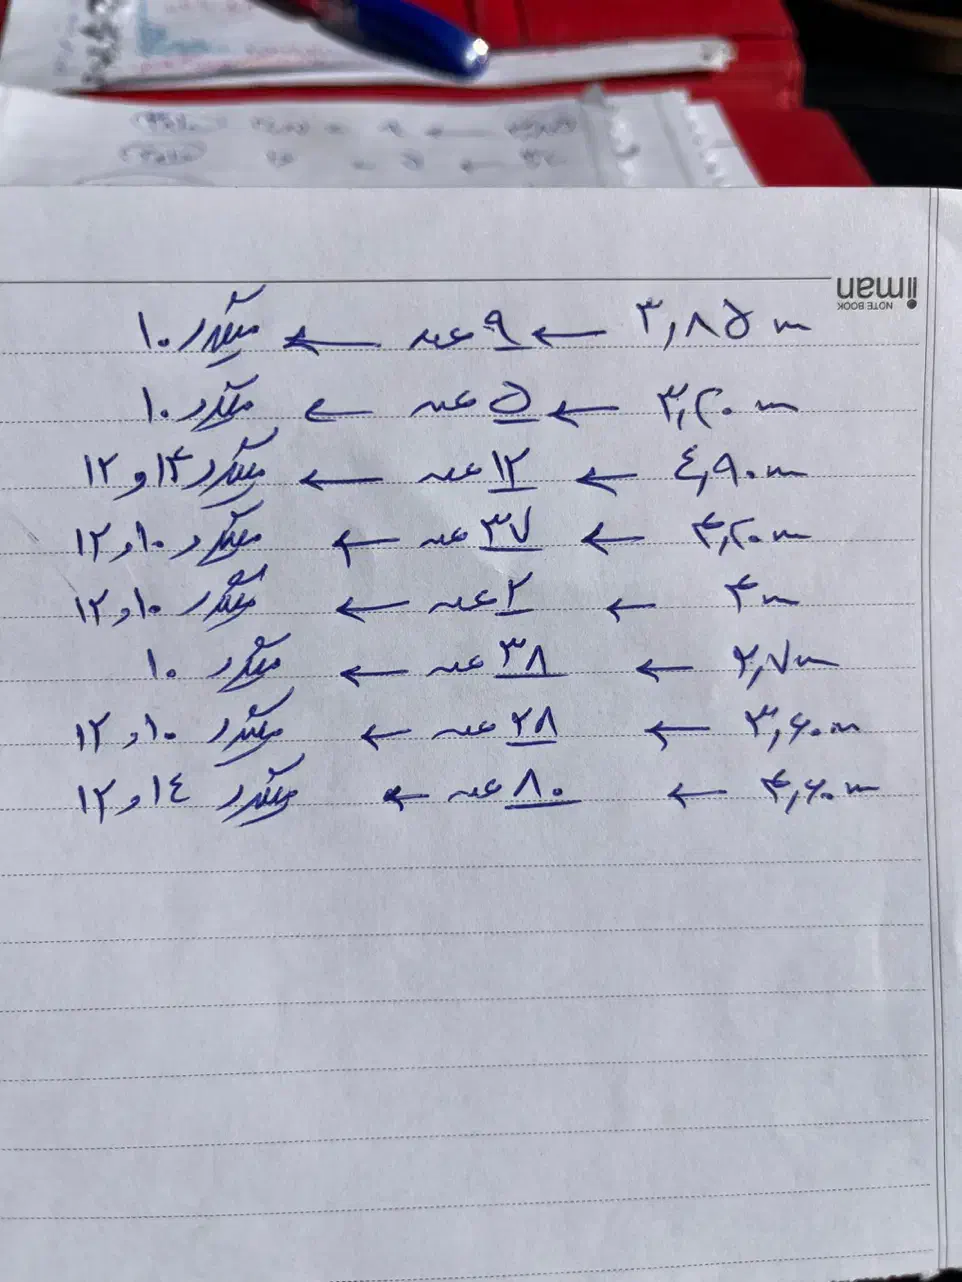 iliman
NOTE BOOK
۳,۸۵ m ← ۹ عدد ← میلگرد ۱۰
۳,۲۰ m ← ۵ عدد ← میلگرد ۱۰
٤,۹۰ m ← ۱۲ عدد ← میلگرد ۱۴ و ۱۲
۴,۲۰ m ← ۳۷ عدد ← میلگرد ۱۰ و ۱۲
۴ m ← ۲ عدد ← میلگرد ۱۰ و ۱۲
۲,۷ m ← ۳۸ عدد ← میلگرد ۱۰
۳,۶۰ m ← ۲۸ عدد ← میلگرد ۱۰ و ۱۲
۴,۶۰ m ← ۸۰ عدد ← میلگرد ١٤ و ۱۲